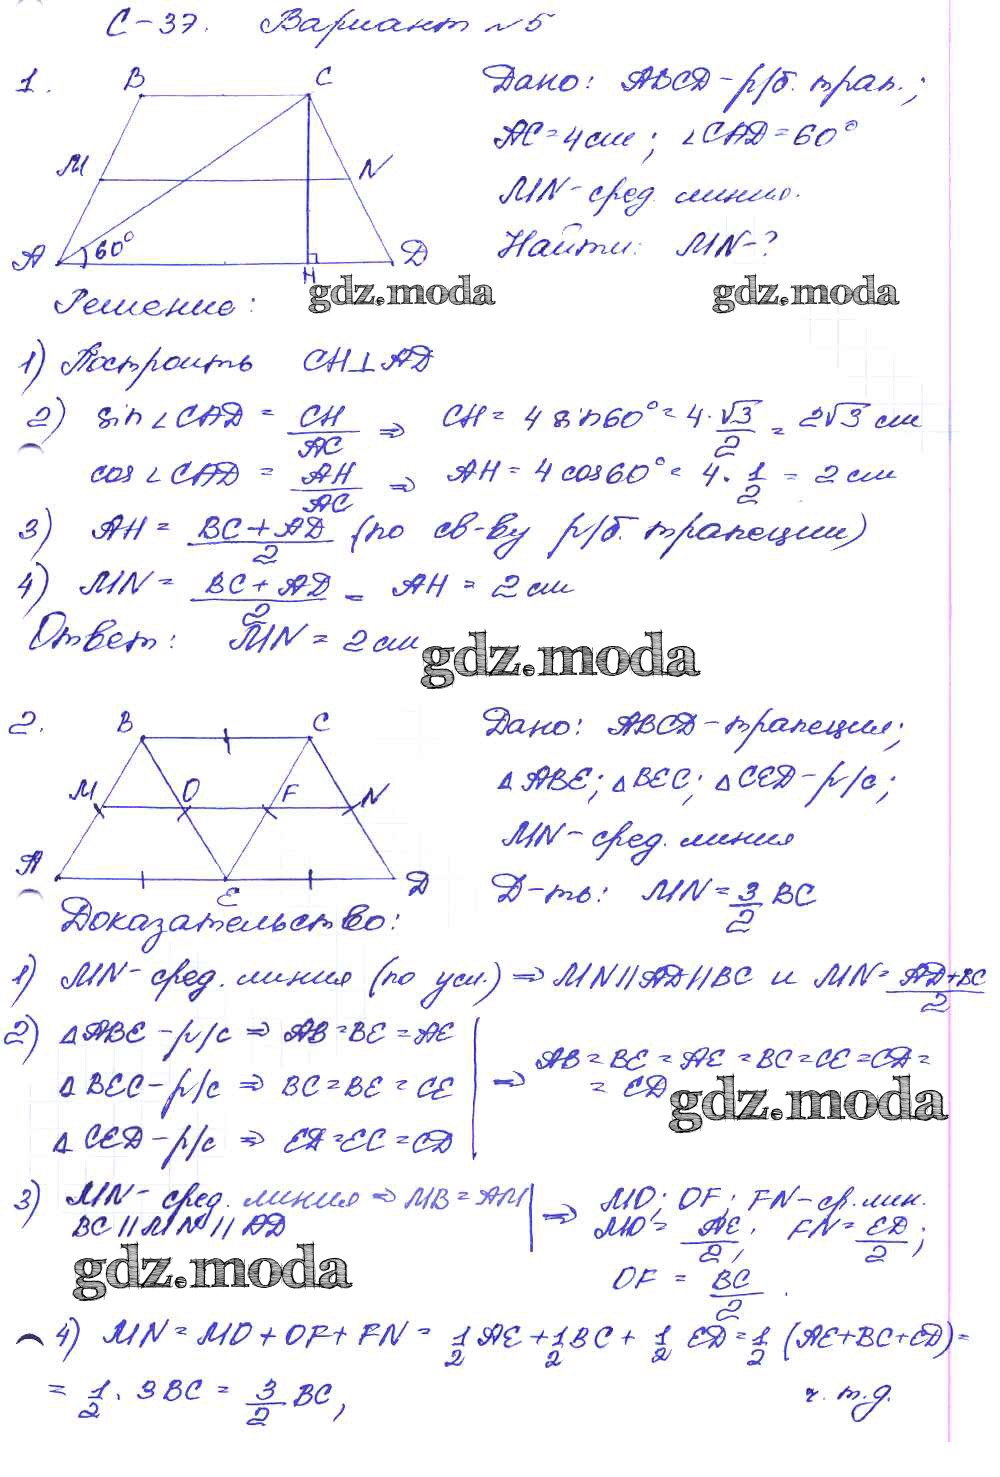 С-37. Вариант №5
1.
B C
M N
A 60° H D
Дано: ABCD-р/б. трап.;
AC=4см; ∠CAD=60°
MN-сред. линия.
Найти: MN-?
gdz.moda gdz.moda
Решение:
1) Построить CH⊥AD
2) sin∠CAD = CH/AC ⇒ CH = 4 sin60° = 4·√3/2 = 2√3 см
cos∠CAD = AH/AC ⇒ AH = 4cos60° = 4·1/2 = 2 см
3) AH = BC+AD/2 (по св-ву р/б. трапеции)
4) MN = BC+AD/2 = AH = 2 см
Ответ: MN = 2 см
gdz.moda
2.
B C
M O F N
A E D
Дано: ABCD-трапеция;
△ABE; △BEC; △CED-р/с;
MN-сред. линия
Д-ть: MN=3/2 BC
Доказательство:
1) MN-сред. линия (по усл.) ⇒ MN||AD||BC и MN=AD+BC/2
2) △ABE-р/с ⇒ AB=BE=AE
△BEC-р/с ⇒ BC=BE=CE
△CED-р/с ⇒ ED=EC=CD
⇒ AB=BE=AE=BC=CE=CD=
=ED
gdz.moda
3) MN-сред. линия ⇒ MB=AM
BC||MN||AD
⇒ MO; OF; FN-ср. лин.
MO=AE/2; FN=ED/2;
OF=BC/2.
gdz.moda
4) MN=MO+OF+FN= 1/2 AE+1/2 BC+1/2 ED=1/2 (AE+BC+ED)=
= 1/2 · 3BC = 3/2 BC, ч.т.д.